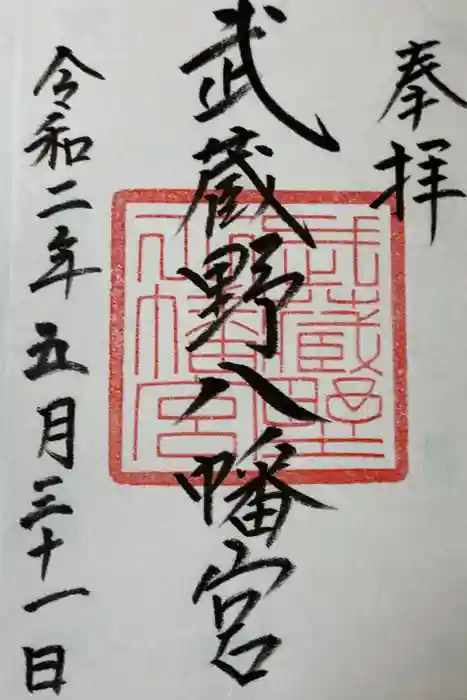 奉拝
武蔵野八幡宮
武蔵野
八幡宮
令和二年五月三十一日